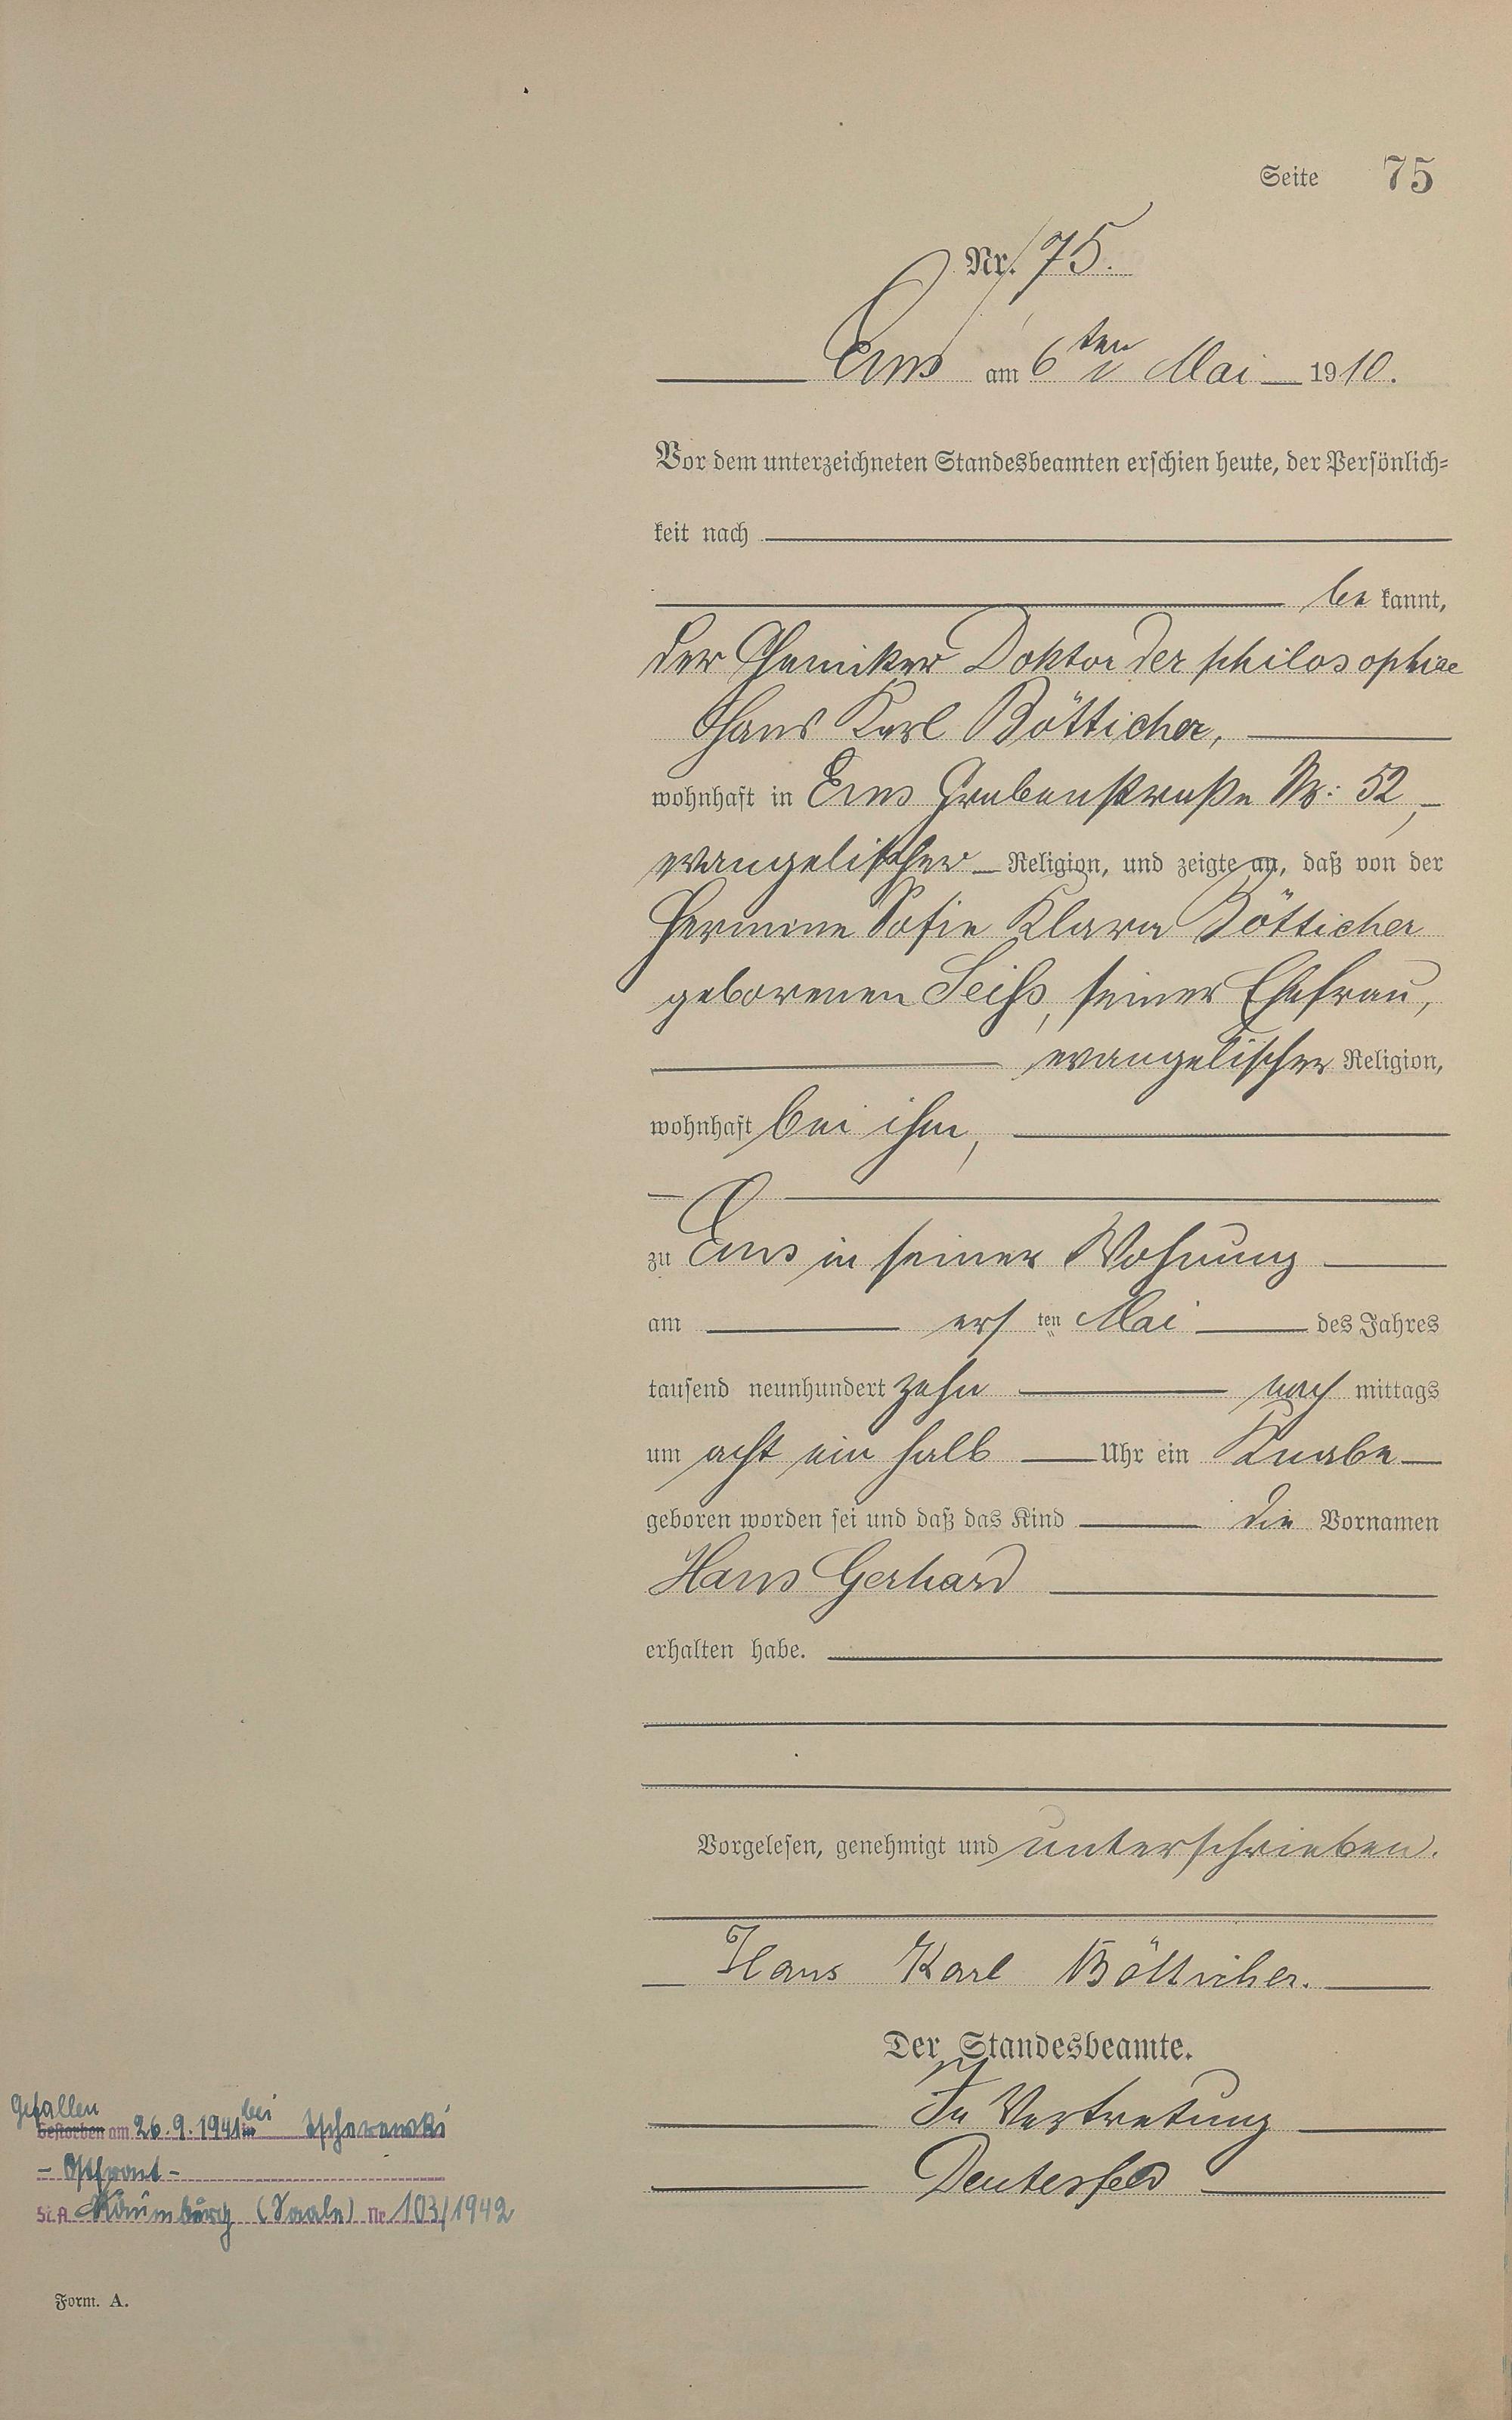 Seite 75
Nr. 75.
Ems am 6ten Mai 1910.
Vor dem unterzeichneten Standesbeamten erschien heute, der Persönlich-
keit nach
be kannt,
der Chemiker Doktor der philosophiae
Hans Karl Bötticher,
wohnhaft in Ems Grabenstraße No: 52,
evangelischer Religion, und zeigte an, daß von der
Hermine Sofie Klara Bötticher
geborenen Seiß, seiner Ehefrau,
evangelischer Religion,
wohnhaft bei ihm,
zu Ems in seiner Wohnung
am ersten Mai des Jahres
tausend neunhundert zehn nach mittags
um acht ein halb Uhr ein Knabe
geboren worden sei und daß das Kind die Vornamen
Hans Gerhard
erhalten habe.
Vorgelesen, genehmigt und unterschrieben.
Hans Karl Bötticher.
Der Standesbeamte.
In Vertretung
Deutesfeld
Gefallen bei
Gestorben am 26.9.1941 in
- Ostfront -
St.A. Naumburg (Saale) Nr. 103/1942
Form. A.